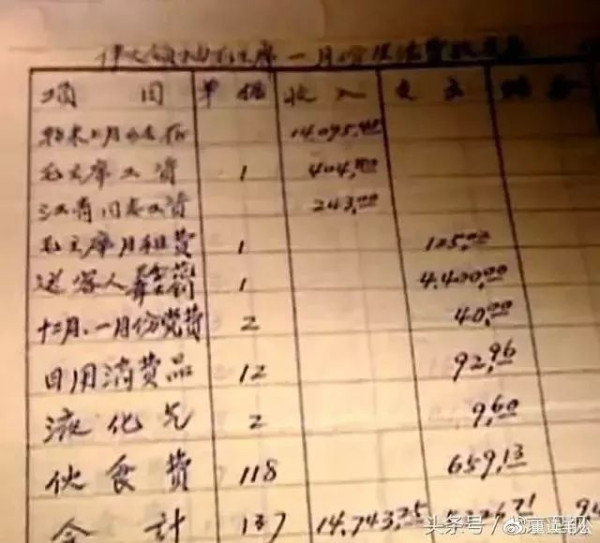 伟大领袖毛主席一月份生活费收支表
项目 单据 收入 支出 结余
14,095.40
毛主席工资 1 404.80
江青同志工资 243.00
毛主席月租费 1 125.02
送客人 1 4,400.00
十二月、一月份党费 2 40.00
日用消费品 12 92.96
液化气 2 9.60
伙食费 118 659.13
合计 137 14,743.25
头条号